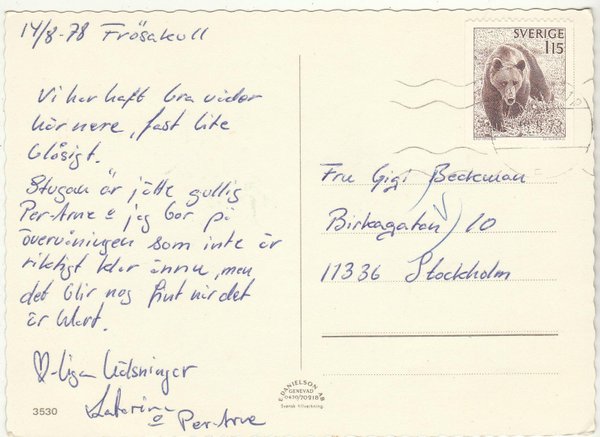 14/8-78 Frösakull
Vi har haft bra väder
här nere, fast lite
blåsigt.
Stugan är jätte gullig
Per-Arne o jag bor på
övervåningen som inte är
riktigt klar ännu, men
det blir nog fint när det
är klart.
♡-liga hälsningar
o Per-Arne
3530
SVERIGE
115
Fru Gigi Beckman
Birkagatan 10
11336 Stockholm
E. DANIELSON AB
GENEVAD
0430/70218
Svensk tillverkning